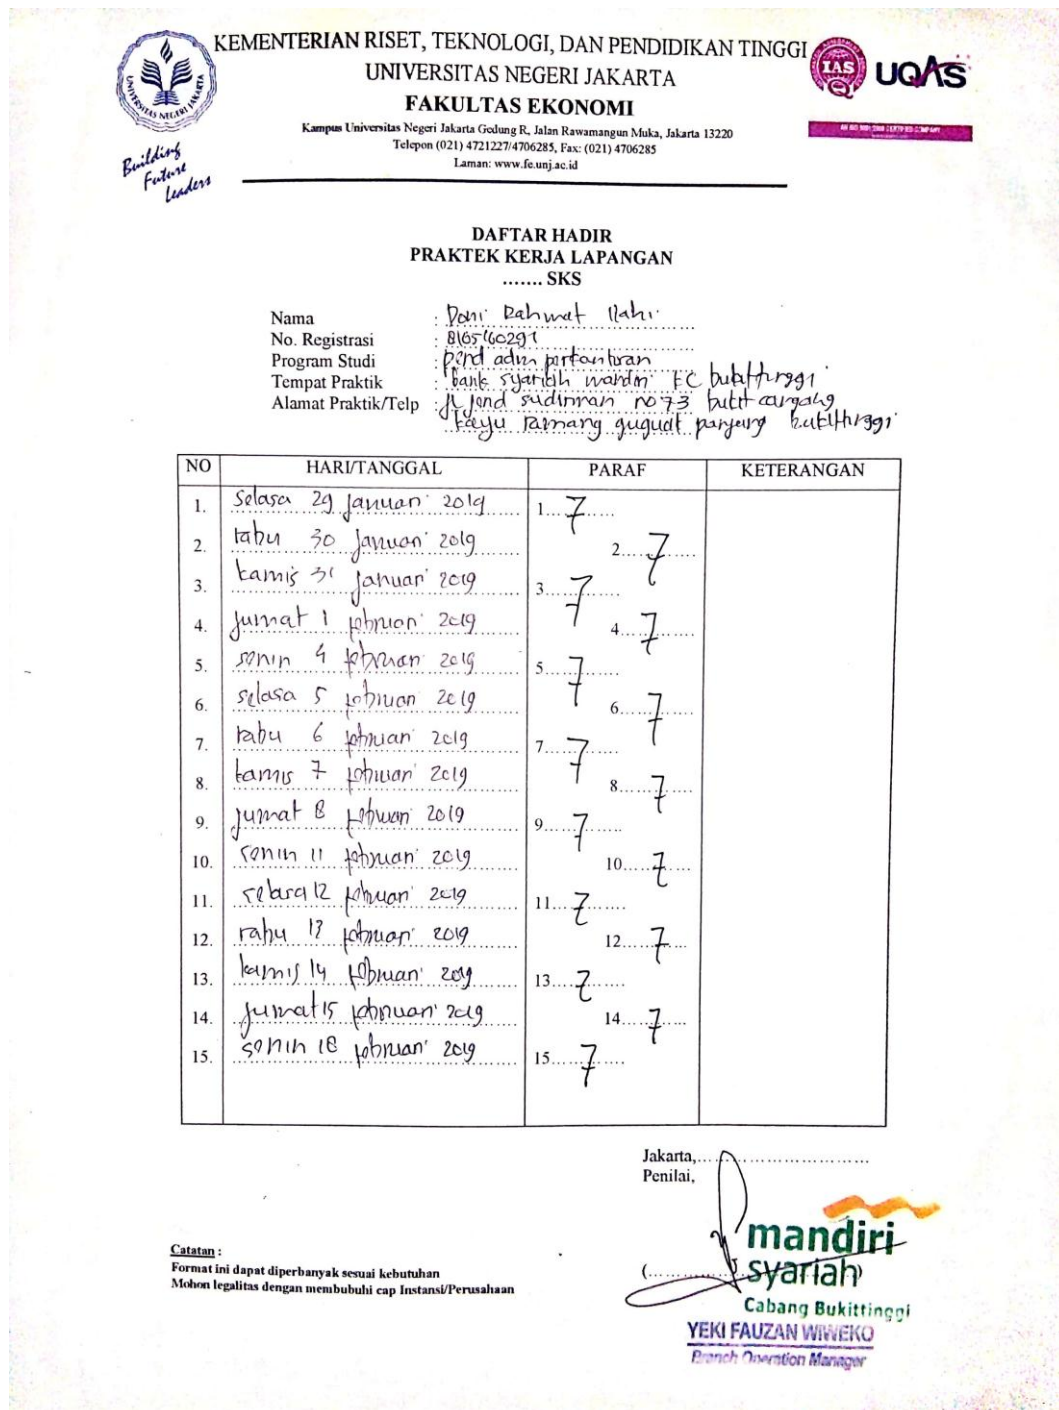 KEMENTERIAN RISET, TEKNOLOGI, DAN PENDIDIKAN TINGGI
UNIVERSITAS NEGERI JAKARTA
FAKULTAS EKONOMI
Kampus Universitas Negeri Jakarta Gedung R, Jalan Rawamangun Muka, Jakarta 13220
Telepon (021) 4721227/4706285, Fax: (021) 4706285
Laman: www.fe.unj.ac.id
UNIVERSITAS NEGERI JAKARTA
Building
Future
Leaders
IAS
UQAS
DAFTAR HADIR
PRAKTEK KERJA LAPANGAN
....... SKS
Nama : Doni Rahmat Ilahi
No. Registrasi : 8165160291
Program Studi : pend adm perkantoran
Tempat Praktik : bank syariah mandiri KC bukittinggi
Alamat Praktik/Telp : jl jend sudirman no 73 bukit cangang
kayu ramang guguak panjang bukittinggi
NO HARI/TANGGAL PARAF KETERANGAN
1. selasa 29 januari 2019 1.
2. rabu 30 januari 2019 2.
3. kamis 31 januari 2019 3.
4. jumat 1 februari 2019 4.
5. senin 4 februari 2019 5.
6. selasa 5 februari 2019 6.
7. rabu 6 februari 2019 7.
8. kamis 7 februari 2019 8.
9. jumat 8 februari 2019 9.
10. senin 11 februari 2019 10.
11. selasa 12 februari 2019 11.
12. rabu 13 februari 2019 12.
13. kamis 14 februari 2019 13.
14. jumat 15 februari 2019 14.
15. senin 18 februari 2019 15.
Jakarta,
Penilai,
mandiri
syariah
Cabang Bukittinggi
YEKI FAUZAN WIWEKO
Branch Operation Manager
Catatan :
Format ini dapat diperbanyak sesuai kebutuhan
Mohon legalitas dengan membubuhi cap Instansi/Perusahaan